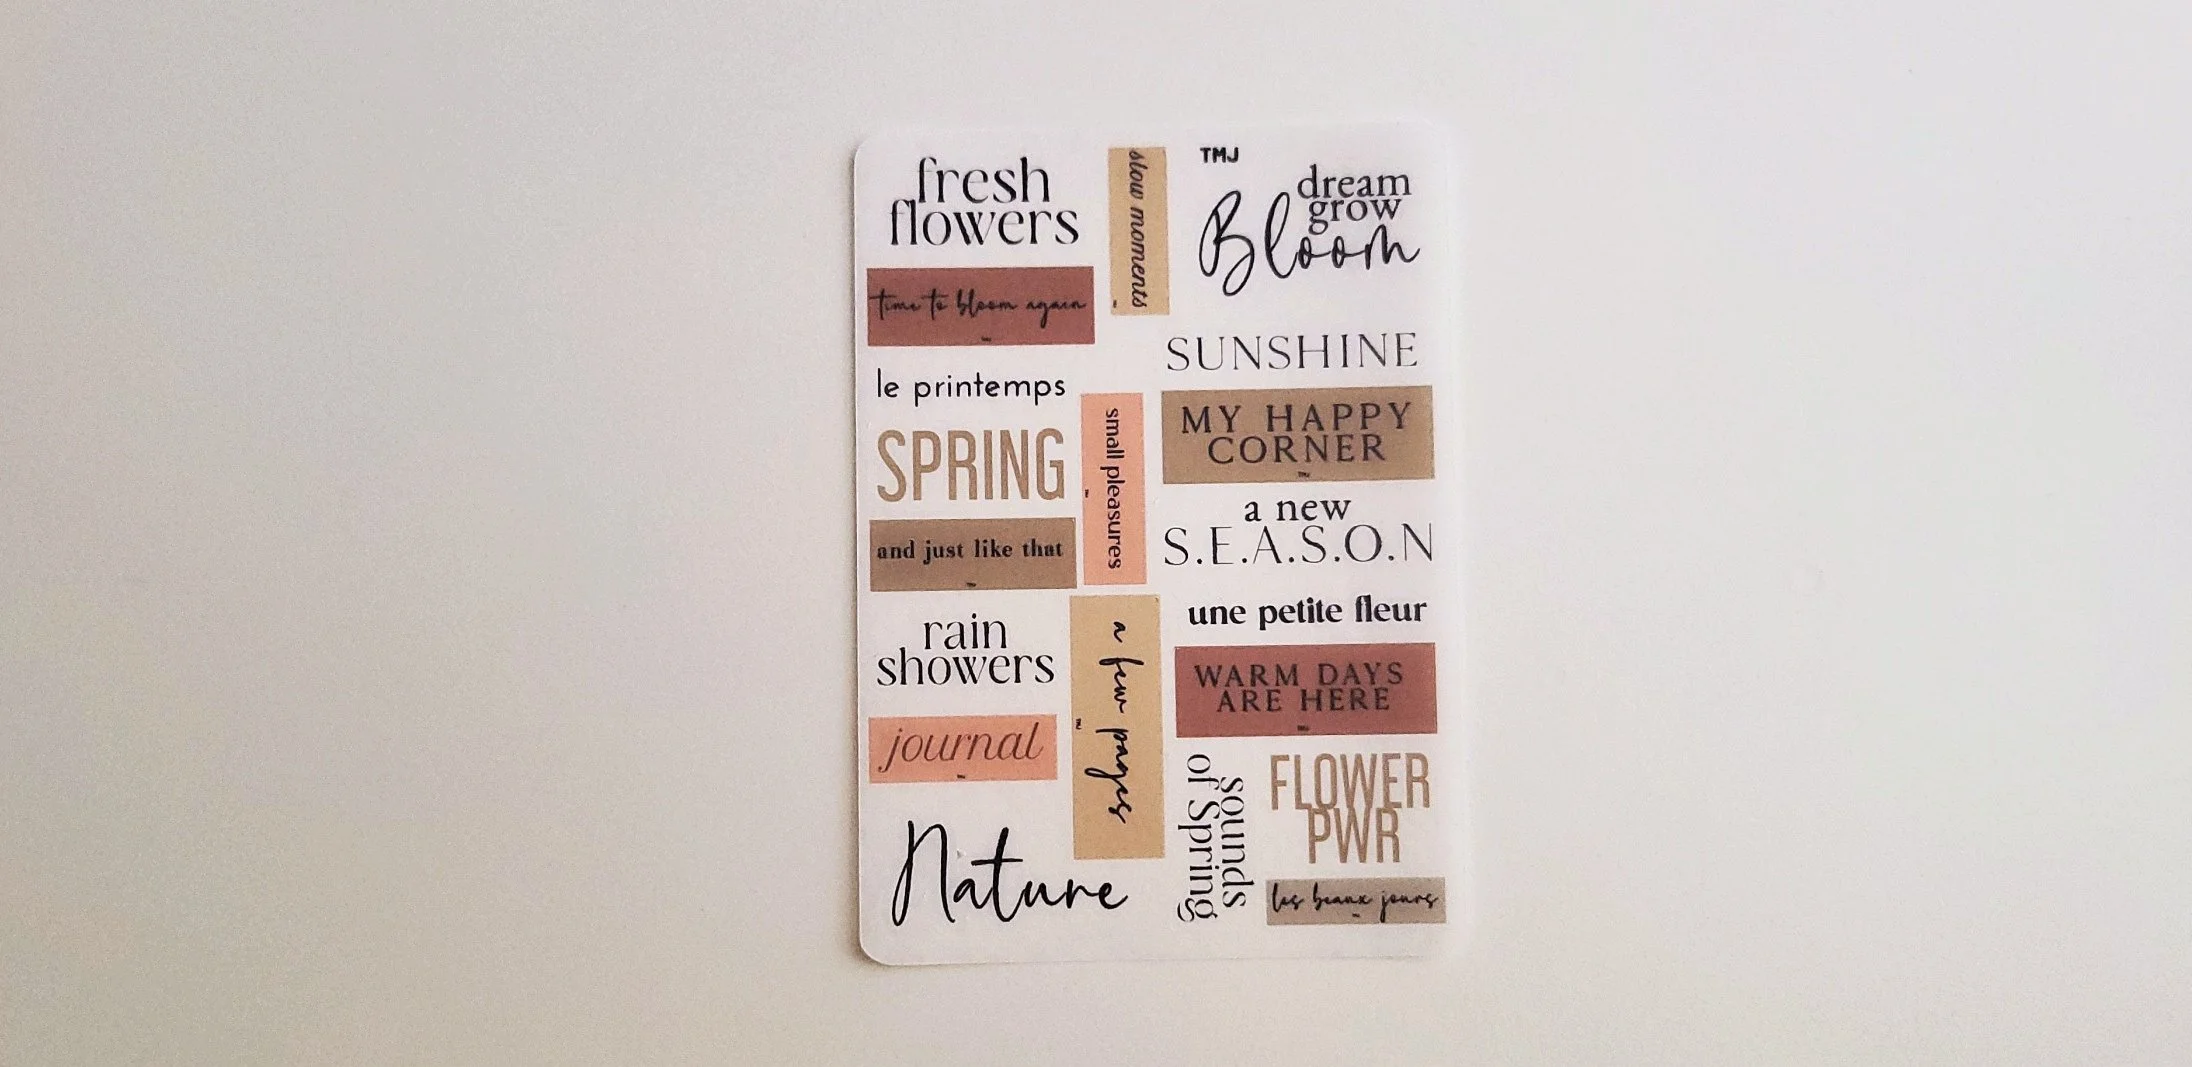 fresh
flowers
time to bloom again
le printemps
SPRING
and just like that
rain
showers
journal
Nature
slow moments
small pleasures
a few pages
TMJ
dream
grow
Bloom
SUNSHINE
MY HAPPY
CORNER
a new
S.E.A.S.O.N
une petite fleur
WARM DAYS
ARE HERE
sounds
of Spring
FLOWER
PWR
les beaux jours